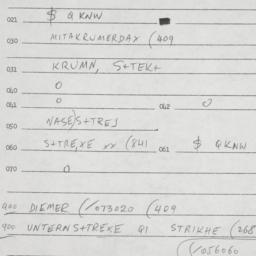 021 $ QKNW
030 MITAKRUMERDAY (409
031 KRUMN, S+TEK+
040 0
041 0 042 0
050 NASE)S+TRES
060 S+TRE,XE xx (841 061 $ QKNW
070 0
400 DIEMER (/073020 (409
900 UNTERNS+TREXE QI STRIKHE (268
(/056060